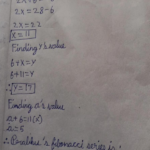 2x = 28-6
2x = 22
x = 11
Finding y's value
6+x=y
6+11=y
y=17
Finding a's value
a+6=11(x)
a=5
∴ fibonacci series is